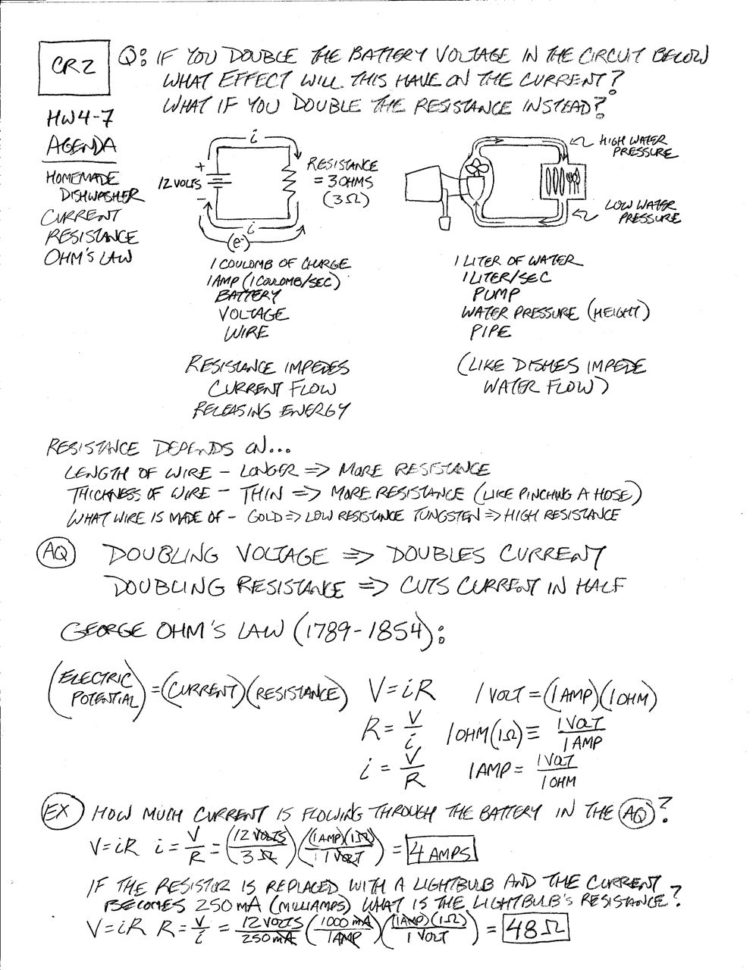 CR2
Q: IF YOU DOUBLE THE BATTERY VOLTAGE IN THE CIRCUIT BELOW
WHAT EFFECT WILL THIS HAVE ON THE CURRENT?
WHAT IF YOU DOUBLE THE RESISTANCE INSTEAD?
HW4-7
AGENDA
HOMEMADE
DISHWASHER
CURRENT
RESISTANCE
OHM'S LAW
i
+
12 VOLTS
-
RESISTANCE
= 3 OHMS
(3Ω)
i
(e-)
HIGH WATER
PRESSURE
LOW WATER
PRESSURE
1 COULOMB OF CHARGE
1 AMP (1 COULOMB/SEC)
BATTERY
VOLTAGE
WIRE
1 LITER OF WATER
1 LITER/SEC
PUMP
WATER PRESSURE (HEIGHT)
PIPE
RESISTANCE IMPEDES
CURRENT FLOW
RELEASING ENERGY
(LIKE DISHES IMPEDE
WATER FLOW)
RESISTANCE DEPENDS ON...
LENGTH OF WIRE - LONGER => MORE RESISTANCE
THICKNESS OF WIRE - THIN => MORE RESISTANCE (LIKE PINCHING A HOSE)
WHAT WIRE IS MADE OF - GOLD => LOW RESISTANCE TUNGSTEN => HIGH RESISTANCE
AQ DOUBLING VOLTAGE => DOUBLES CURRENT
DOUBLING RESISTANCE => CUTS CURRENT IN HALF
GEORGE OHM'S LAW (1789-1854):
(ELECTRIC POTENTIAL) = (CURRENT)(RESISTANCE) V=iR 1 VOLT = (1 AMP)(1 OHM)
R = V/i 1 OHM (1Ω) ≡ 1 VOLT/1 AMP
i = V/R 1 AMP = 1 VOLT/1 OHM
EX HOW MUCH CURRENT IS FLOWING THROUGH THE BATTERY IN THE AQ?
V=iR i = V/R = (12 VOLTS/3Ω)((1 AMP)(1Ω)/1 VOLT) = 4 AMPS
IF THE RESISTOR IS REPLACED WITH A LIGHTBULB AND THE CURRENT
BECOMES 250 MA (MILLIAMPS) WHAT IS THE LIGHTBULB'S RESISTANCE?
V=iR R = V/i = 12 VOLTS/250 mA (1000 mA/1 AMP)((1 AMP)(1Ω)/1 VOLT) = 48Ω